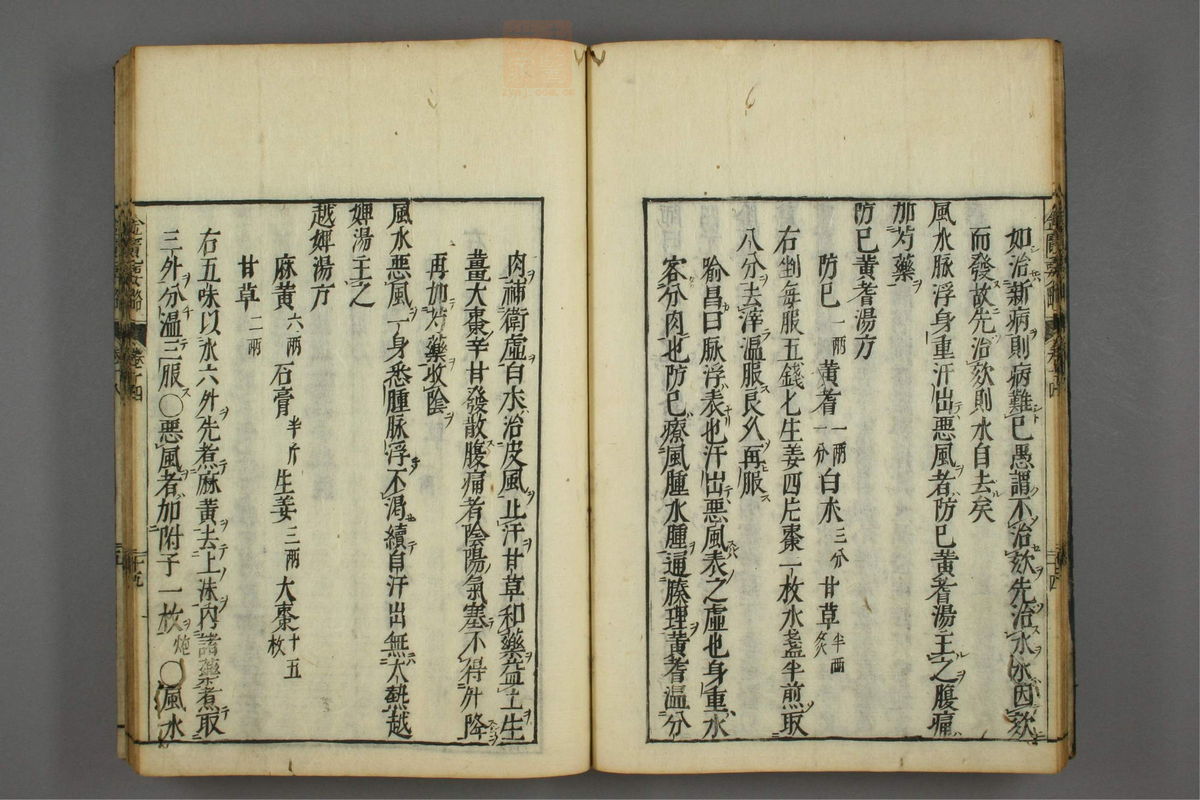 如治新病則病難已愚謂不治欬先治水水因欬
而發故先治欬則水自去矣
風水脉浮身重汗出惡風者防已黃耆湯主之腹痛
加芍藥
防已黃耆湯方
防已一兩黃耆一兩一分白朮三分甘草半兩炙
右剉每服五錢匕生姜四片棗一枚水盞半煎取
八分去滓温服良久再服
喻昌曰脉浮表也汗出惡風表之虛也身重水
客分肉也防已療風腫水腫通腠理黃耆温分
肉補衛虛白朮治皮風止汗甘草和藥益土生
薑大棗辛甘發散腹痛者陰陽氣塞不得升降
再加芍藥收陰
風水惡風一身悉腫脉浮不渴續自汗出無大熱越
婢湯主之
越婢湯方
麻黃六兩石膏半斤生姜三兩大棗十五枚
甘草二兩
右五味以水六升先煮麻黃去上沫内諸藥煮取
三升分温三服○惡風者加附子一枚炮○風水